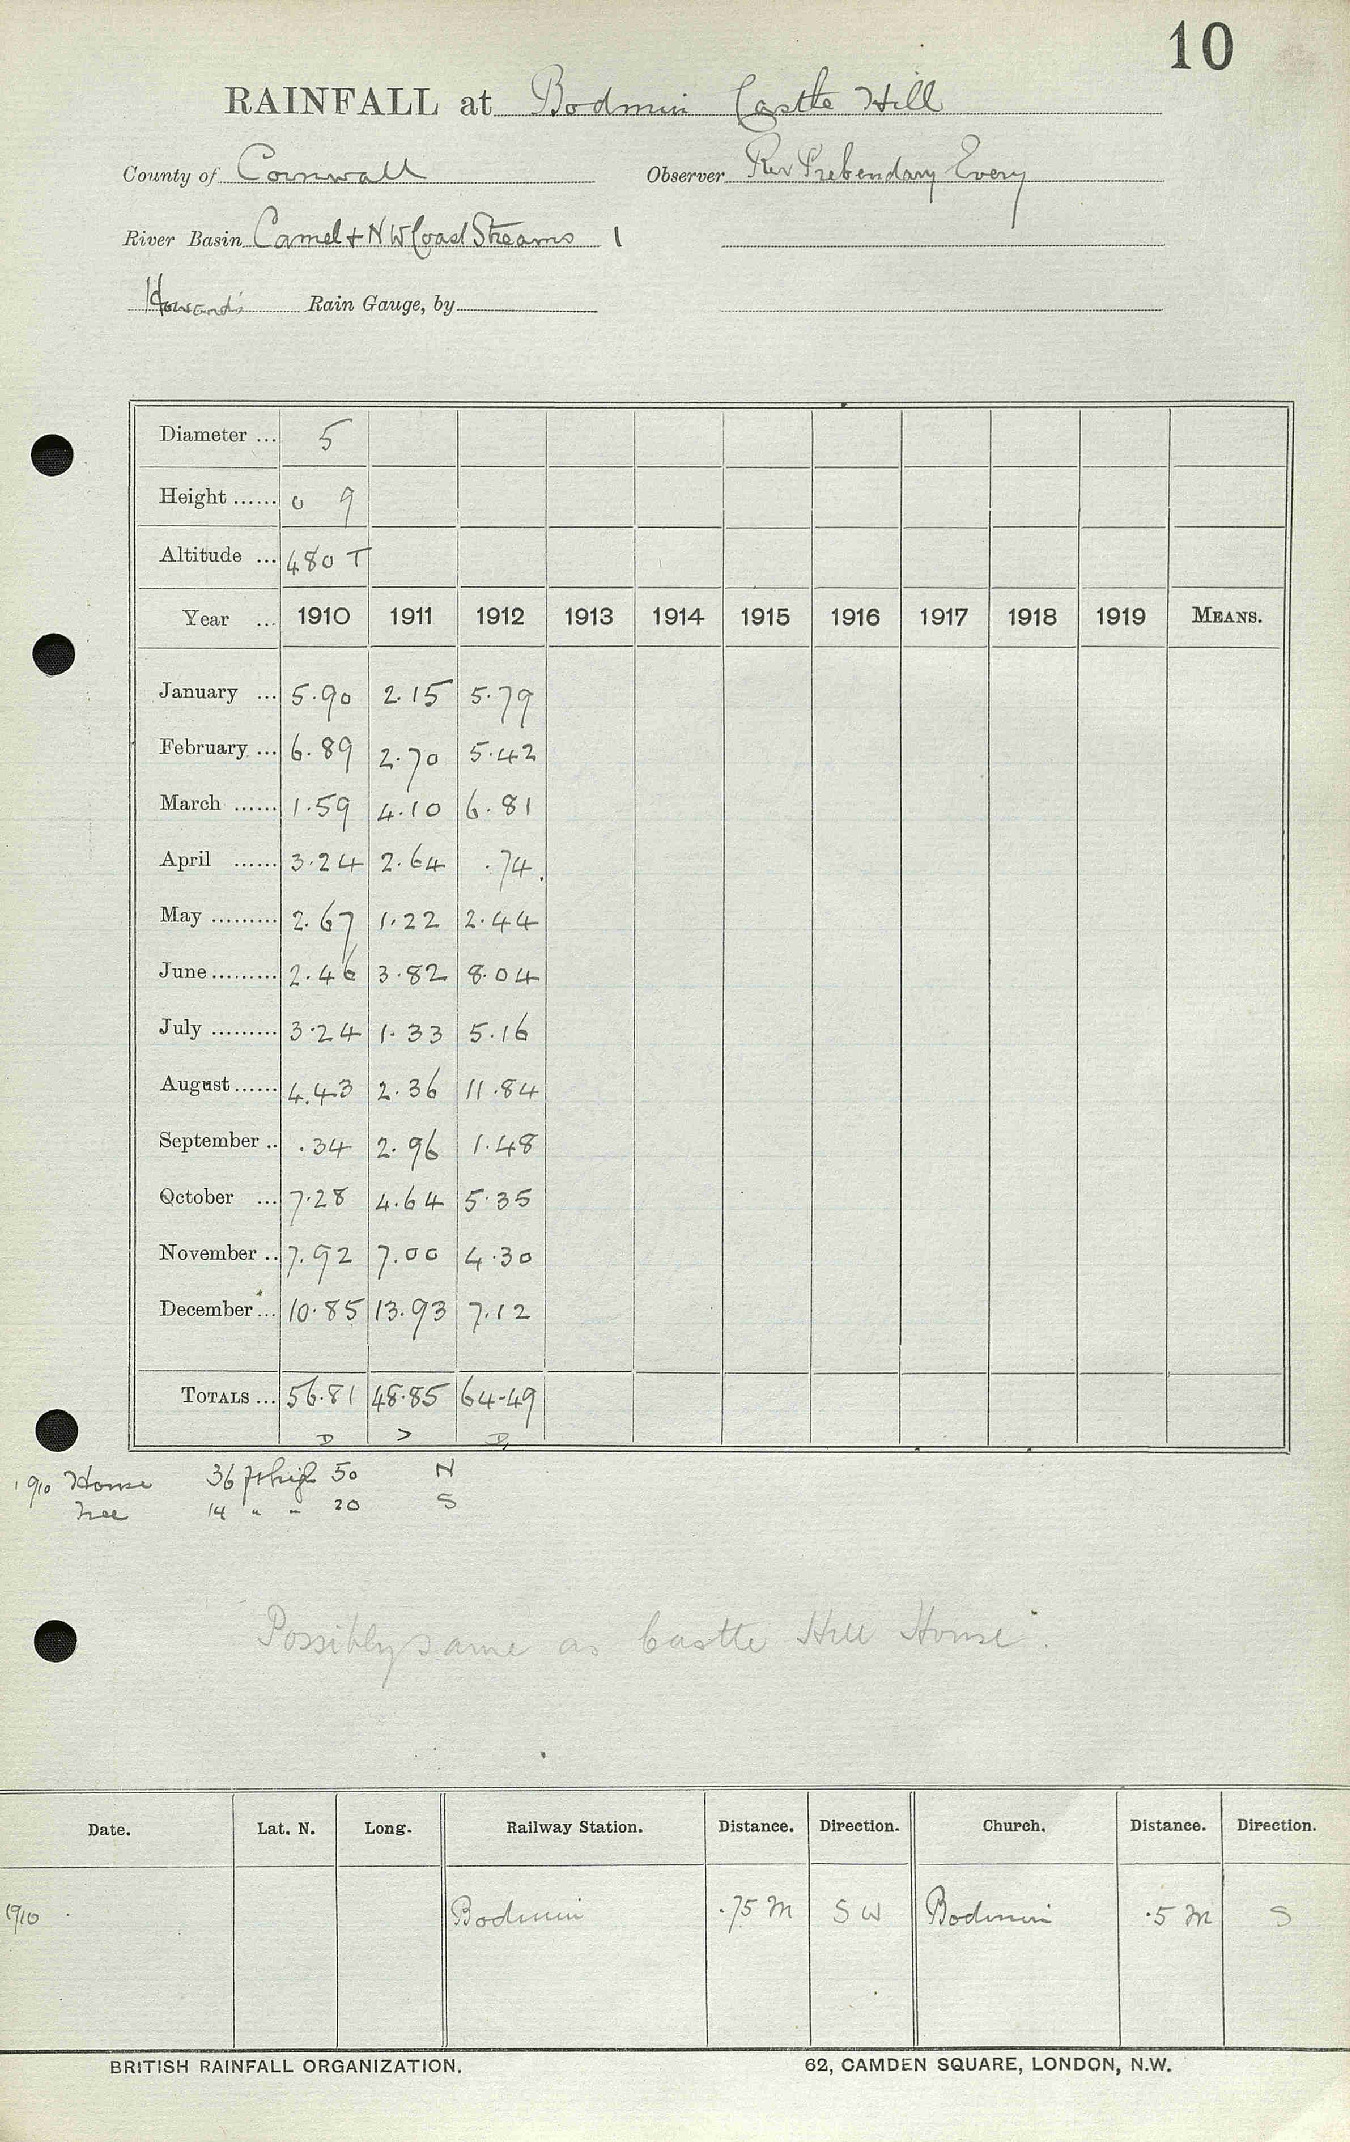 10
RAINFALL at Bodmin Castle Hill
County of Cornwall Observer Rev Prebendary Every
River Basin Camel & N W Coast Streams 1
Howard's Rain Gauge, by
Diameter ... 5
Height ...... 0 9
Altitude ... 480 T
Year ... 1910 1911 1912 1913 1914 1915 1916 1917 1918 1919 MEANS.
January ... 5.90 2.15 5.79
February ... 6.89 2.70 5.42
March ...... 1.59 4.10 6.81
April ...... 3.24 2.64 .74
May ......... 2.67 1.22 2.44
June ......... 2.46 3.82 8.04
July ......... 3.24 1.33 5.16
August ...... 4.43 2.36 11.84
September .. .34 2.96 1.48
October ... 7.28 4.64 5.35
November .. 7.92 7.00 4.30
December ... 10.85 13.93 7.12
TOTALS ... 56.81 48.85 64.49
1910 House 36 ft high 50 N
Tree 14 " " 20 S
Possibly same as Castle Hill House.
Date. Lat. N. Long. Railway Station. Distance. Direction. Church. Distance. Direction.
1910 Bodmin .75 m S W Bodmin .5 m S
BRITISH RAINFALL ORGANIZATION. 62, CAMDEN SQUARE, LONDON, N.W.